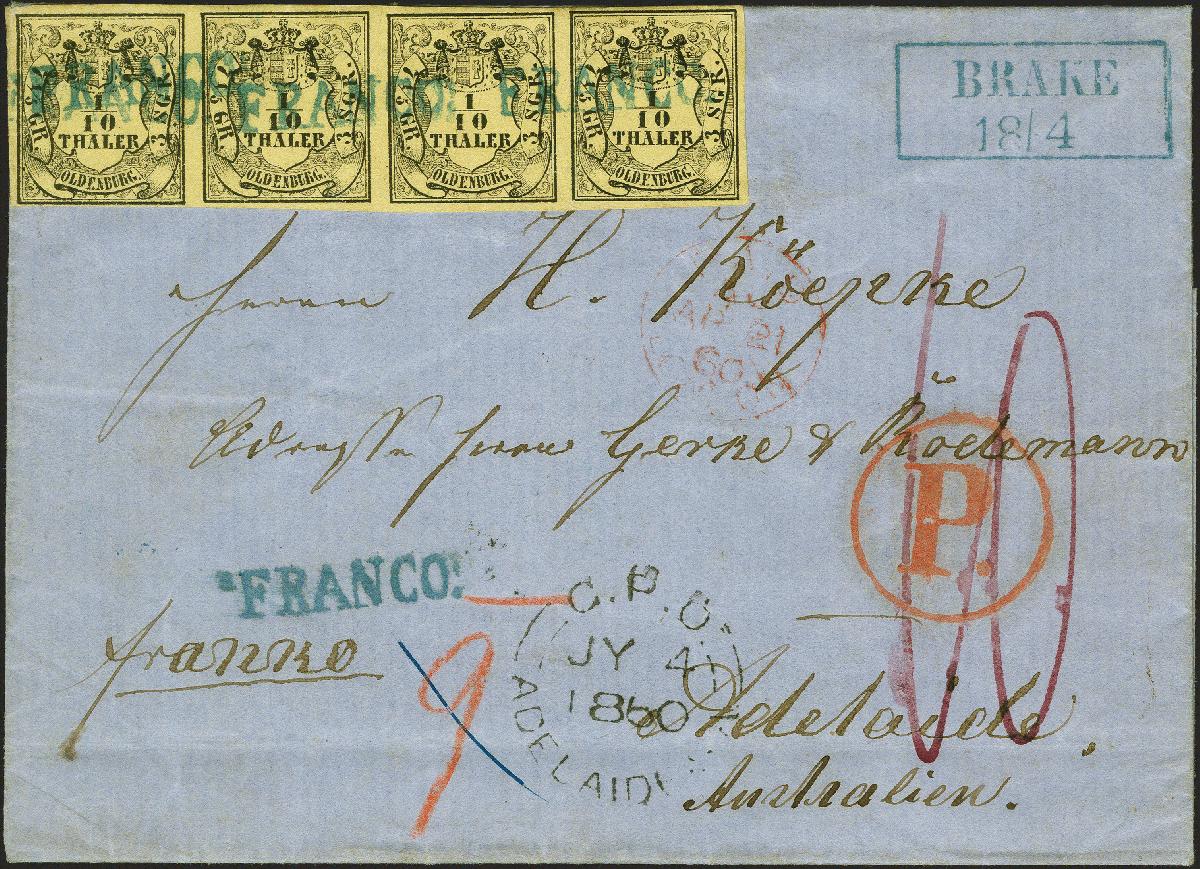 FRANCO. FRANCO. FRANCO
1/10 THALER 1/10 THALER 1/10 THALER 1/10 THALER
3 SGR. 3 SGR. 3 SGR. 3 SGR.
OLDENBURG. OLDENBURG. OLDENBURG. OLDENBURG.
BRAKE
18/4
Herrn H. Köepke
AP 21
60
Adresse Herren Gerke & Rödemann
P.
"FRANCO."
franko
9
10
G.P.O.
JY 4
1860
ADELAIDE
Adelaide,
Australien.